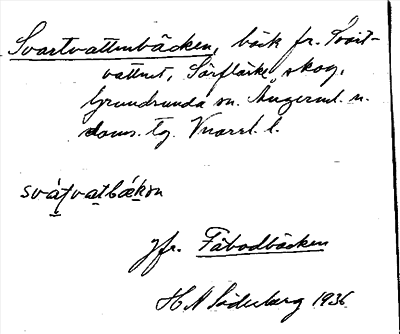 Svartvattenbäcken, bäck fr. Svart-
vattnet, Sörflärke skog,
Grundsunda sn. Ångerml. n.
doms. tg. Vnorrl. l.
svátvatbäkɘn
jfr. Fäbodbäcken
H N Söderberg 1936.